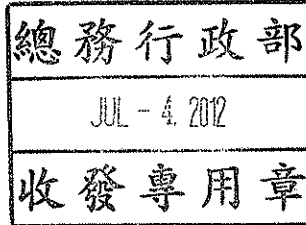 總務行政部
JUL - 4. 2012
收發專用章